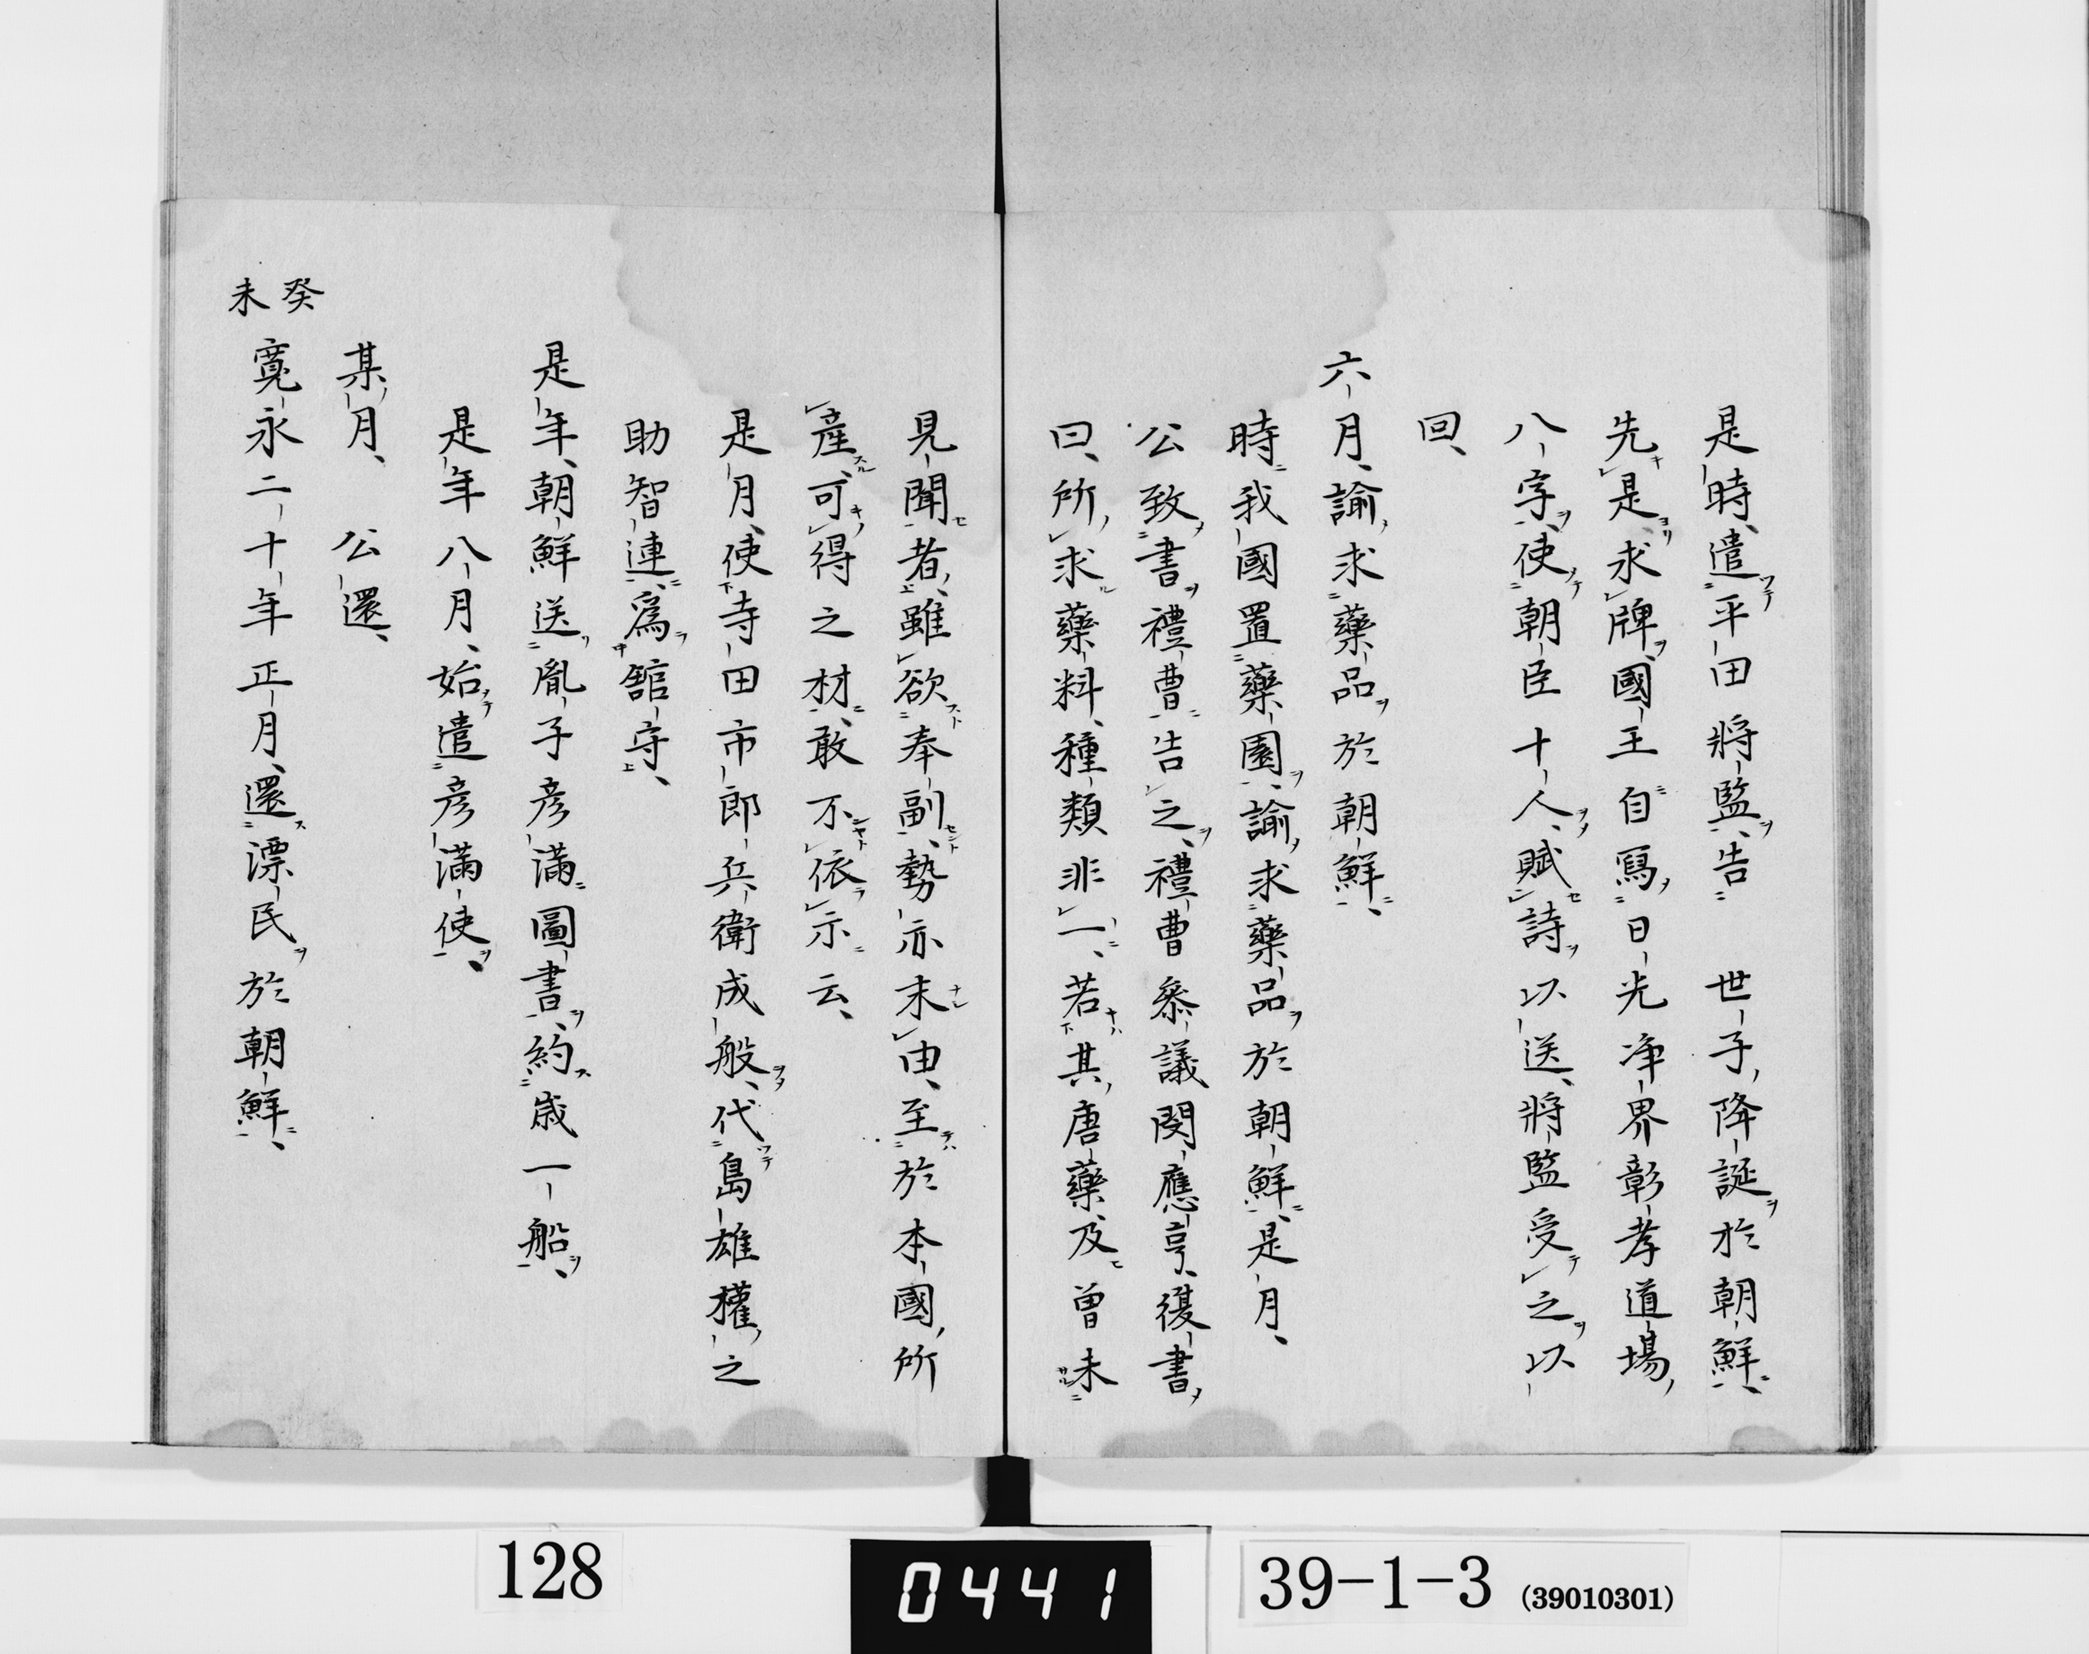 是時、遣平田將監、告　世子降誕於朝鮮、
先是求牌、國王自寫日光淨界彰孝道場
八字、使朝臣十人、賦詩以送、將監受之以
回、
六月、諭求藥品於朝鮮、
時我國置藥園、諭求藥品於朝鮮、是月、
公致書禮曹告之、禮曹叅議閔應亨、復書
曰、所求藥料、種類非一、若其唐藥、及曽未
見聞者、雖欲奉副、勢亦末由、至於本國所
産、可得之材、敢不依示云、
是月、使寺田市郎兵衛成般、代島雄權之
助智連、爲舘守、
是年、朝鮮送胤子彦滿圖書、約歳一船、
是年八月、始遣彦滿使、
某月、　公還、
癸未
寛永二十年正月、還漂民於朝鮮、
128
0441
39-1-3 (39010301)